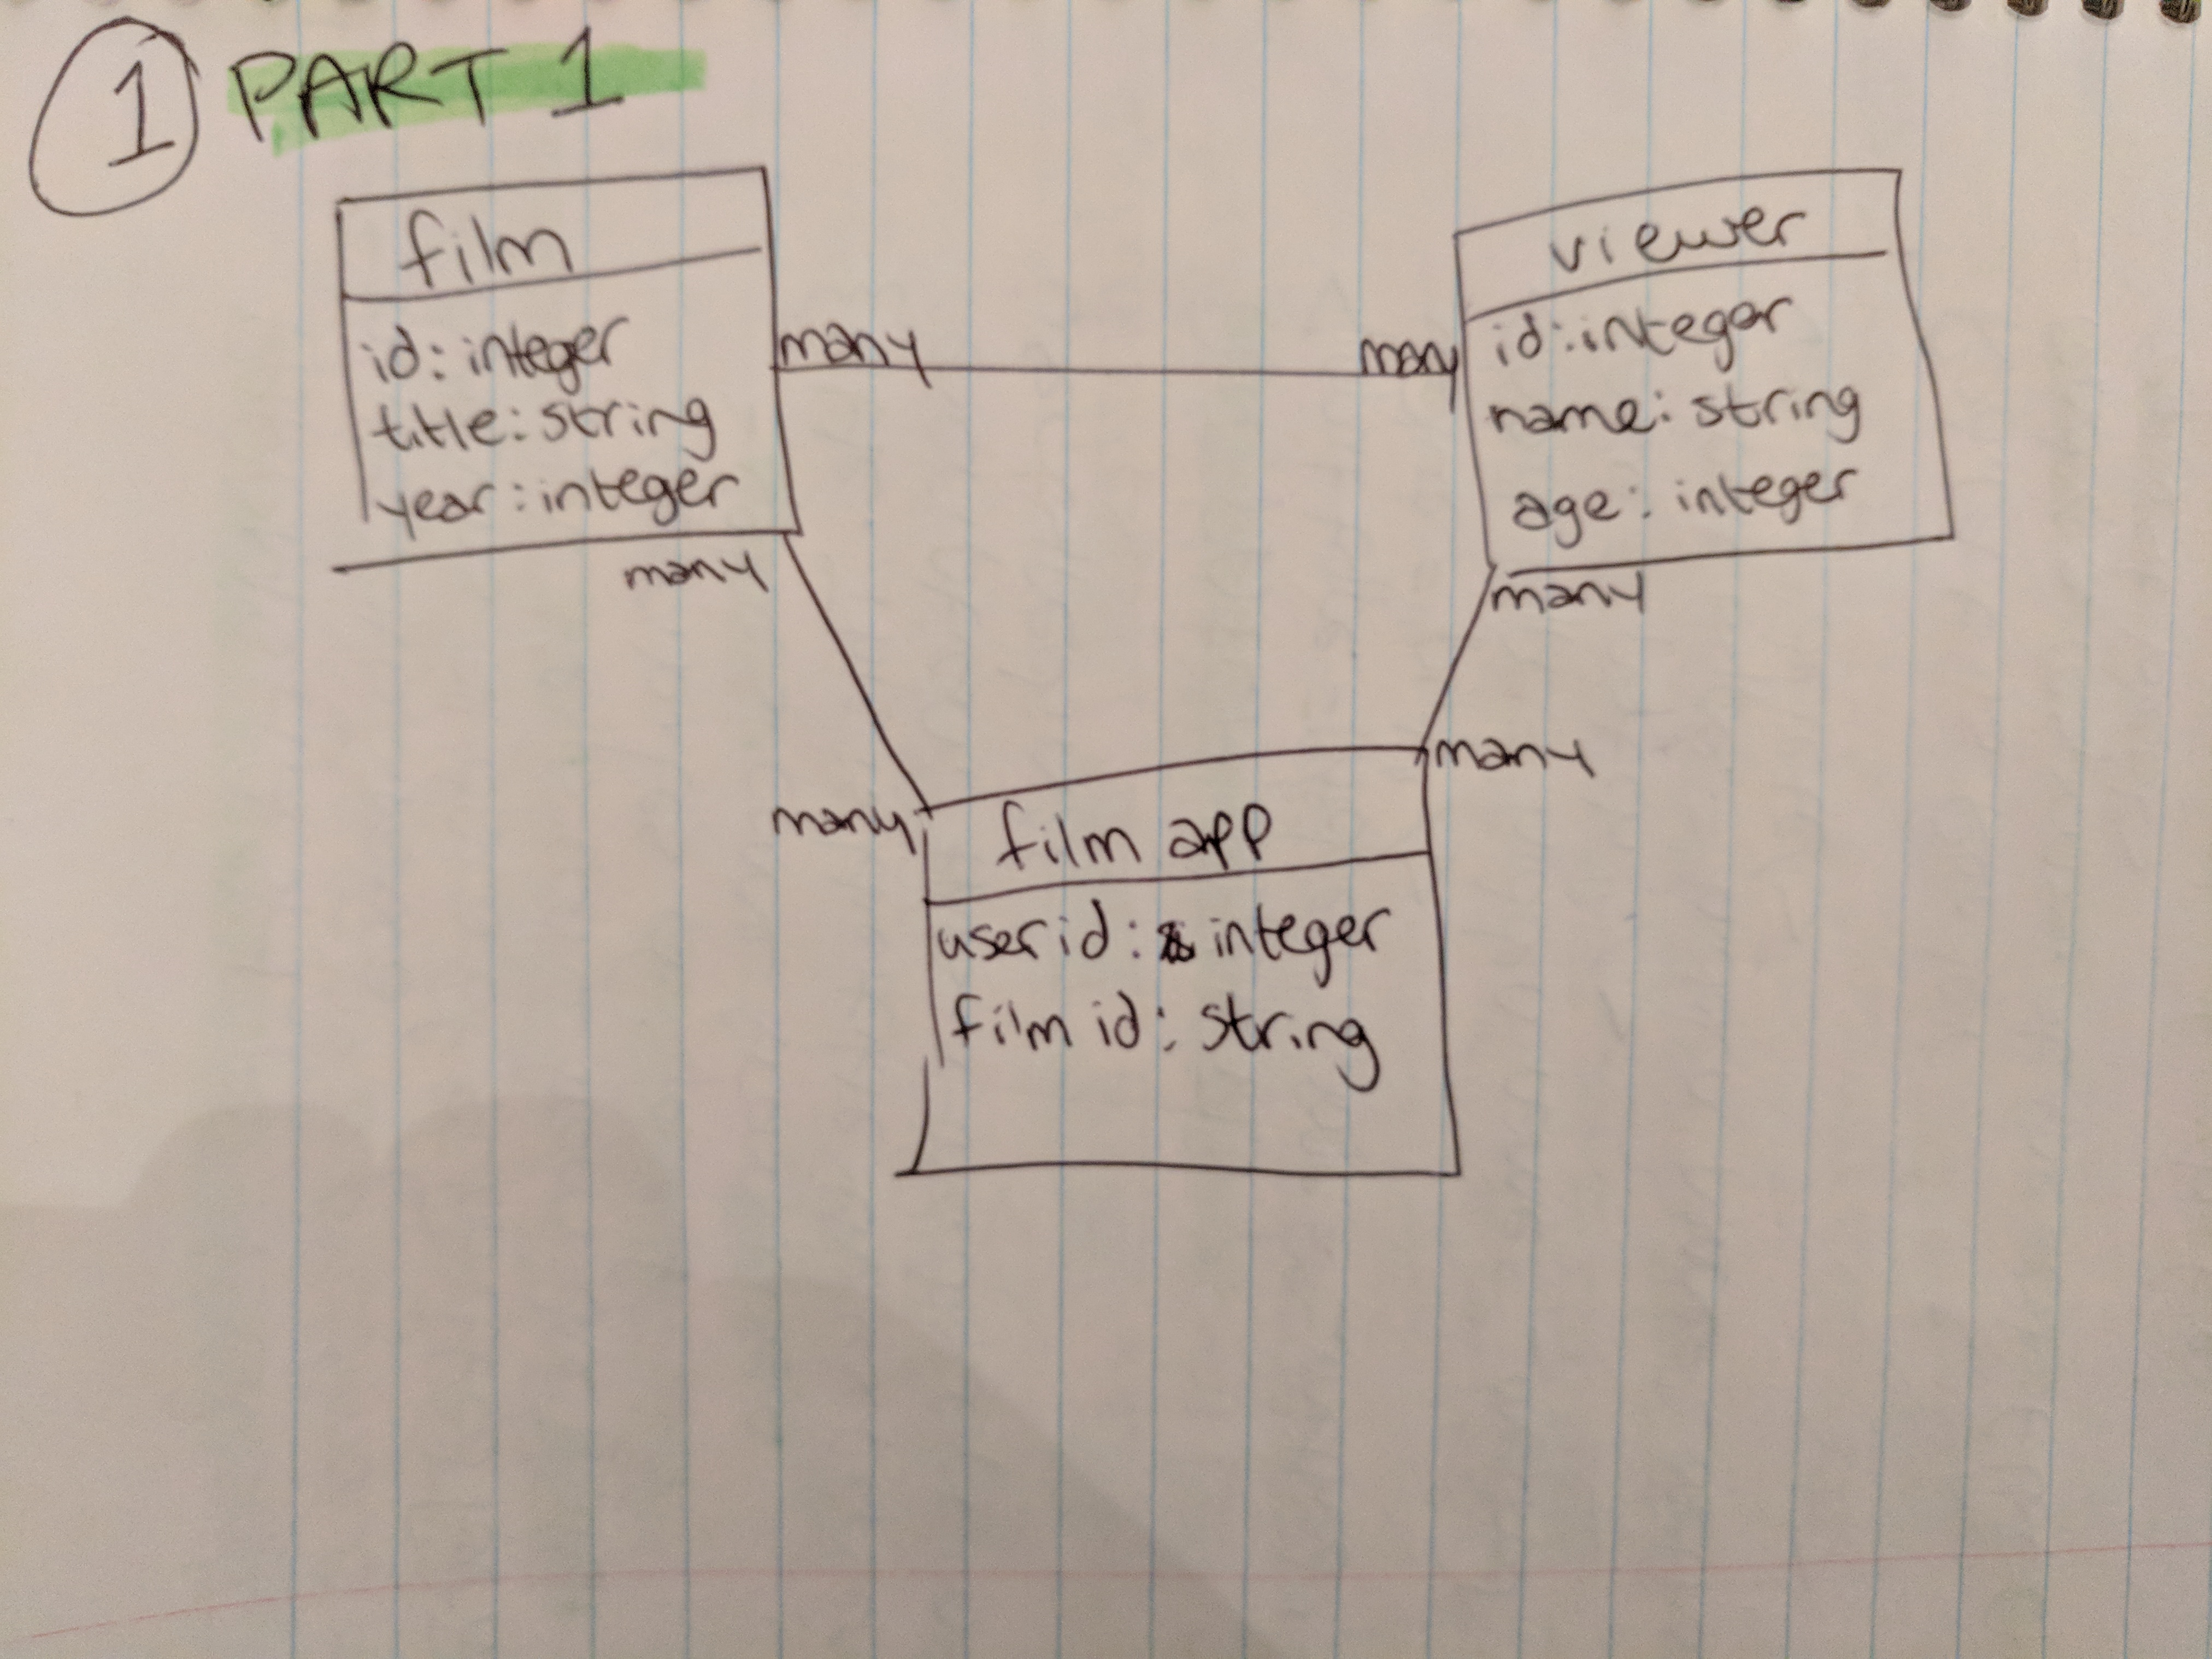 1 PART 1
film
id: integer
title: string
year: integer
many
many
viewer
id: integer
name: string
age: integer
many
many
many
many
film app
user id: integer
film id: string